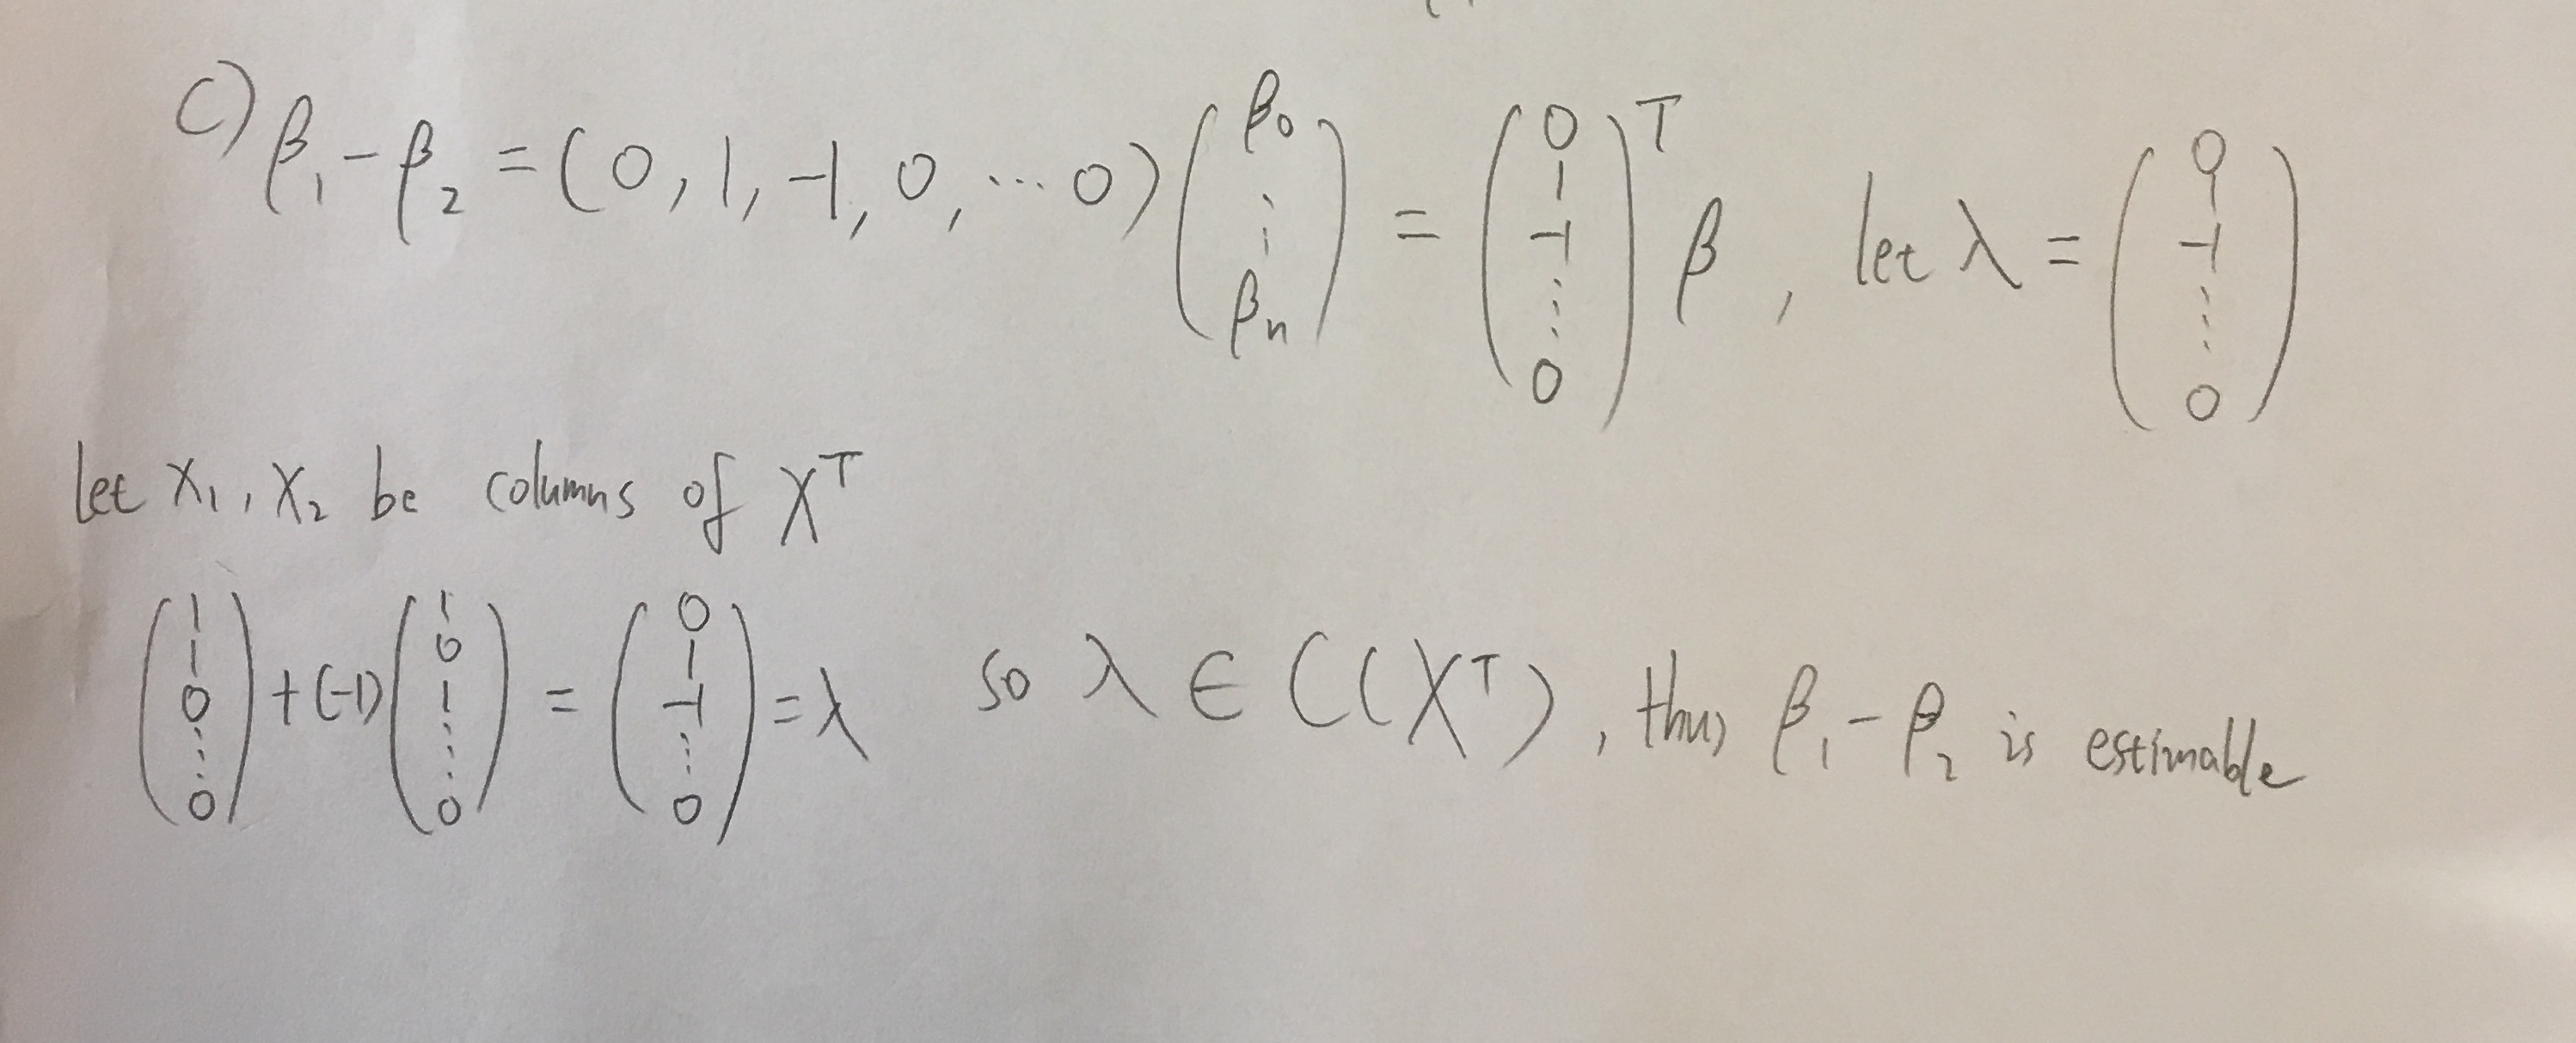 C) β₁ − β₂ = (0, 1, −1, 0, ⋯ 0) (β₀ ⋮ βₙ) = (0 1 −1 ⋮ 0)ᵀ β , let λ = (0 1 −1 ⋮ 0)
let X₁, X₂ be columns of Xᵀ
(1 1 0 ⋮ 0) + (−1) (1 0 1 ⋮ 0) = (0 1 −1 ⋮ 0) = λ so λ ∈ C(Xᵀ), thus β₁ − β₂ is estimable